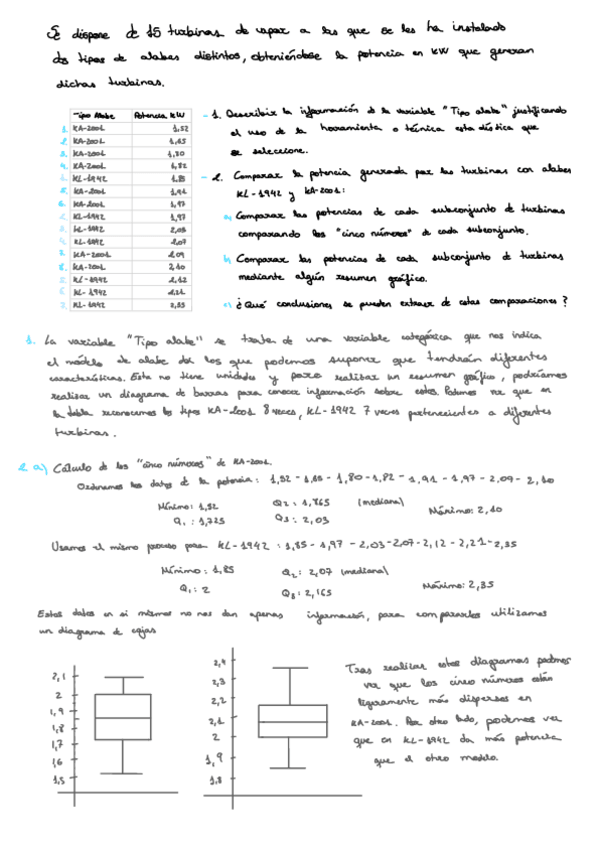 Se dispone de 15 turbinas de vapor a las que se les ha instalado
dos tipos de alabes distintos, obteniéndose la potencia en kW que generan
dichas turbinas.
Tipo Alabe Potencia kW
1. KA-2001 1,52
2. KA-2001 1,65
3. KA-2001 1,80
4. KA-2001 1,82
1. KL-1942 1,85
5. KA-2001 1,91
6. KA-2001 1,97
2. KL-1942 1,97
3. KL-1942 2,03
4. KL-1942 2,07
7. KA-2001 2,09
8. KA-2001 2,10
5. KL-1942 2,12
6. KL-1942 2,21
7. KL-1942 2,35
- 1. Describir la información de la variable "Tipo alabe" justificando
el uso de la herramienta o técnica estadística que
se seleccione.
- 2. Comparar la potencia generada por las turbinas con alabes
KL-1942 y KA-2001:
a) Comparar las potencias de cada subconjunto de turbinas
comparando los "cinco números" de cada subconjunto.
b) Comparar las potencias de cada subconjunto de turbinas
mediante algún resumen gráfico.
c) ¿Qué conclusiones se pueden extraer de estas comparaciones?
1. La variable "Tipo alabe" se trata de una variable categórica que nos indica
el modelo de alabe de los que podemos suponer que tendrán diferentes
características. Esta no tiene unidades y para realizar un resumen gráfico, podríamos
realizar un diagrama de barras para conocer información sobre estos. Podemos ver que en
la tabla reconocemos los tipos KA-2001 8 veces, KL-1942 7 veces pertenecientes a diferentes
turbinas.
2 a) Cálculo de los "cinco números" de KA-2001.
Ordenamos los datos de la potencia: 1,52 - 1,65 - 1,80 - 1,82 - 1,91 - 1,97 - 2,09 - 2,10
Mínimo: 1,52 Q2: 1,865 (mediana) Máximo: 2,10
Q1: 1,725 Q3: 2,03
Usamos el mismo proceso para KL-1942: 1,85 - 1,97 - 2,03 - 2,07 - 2,12 - 2,21 - 2,35
Mínimo: 1,85 Q2: 2,07 (mediana) Máximo: 2,35
Q1: 2 Q3: 2,165
Estos datos en si mismos no nos dan apenas información, para compararlos utilizamos
un diagrama de cajas
2,1
2
1,9
1,8
1,7
1,6
1,5
2,4
2,3
2,2
2,1
2
1,9
1,8
Tras realizar estos diagramas podemos
ver que los cinco números están
ligeramente más dispersos en
KA-2001. Por otro lado, podemos ver
que en KL-1942 da más potencia
que el otro modelo.